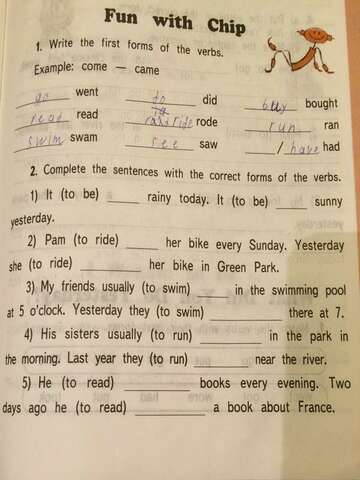 Fun with Chip
1. Write the first forms of the verbs.
Example: come — came
go went do did buy bought
read read ride rode run ran
swim swam see saw / have had
2. Complete the sentences with the correct forms of the verbs.
1) It (to be) ____ rainy today. It (to be) ____ sunny
yesterday.
2) Pam (to ride) ____ her bike every Sunday. Yesterday
she (to ride) ____ her bike in Green Park.
3) My friends usually (to swim) ____ in the swimming pool
at 5 o'clock. Yesterday they (to swim) ____ there at 7.
4) His sisters usually (to run) ____ in the park in
the morning. Last year they (to run) ____ near the river.
5) He (to read) ____ books every evening. Two
days ago he (to read) ____ a book about France.